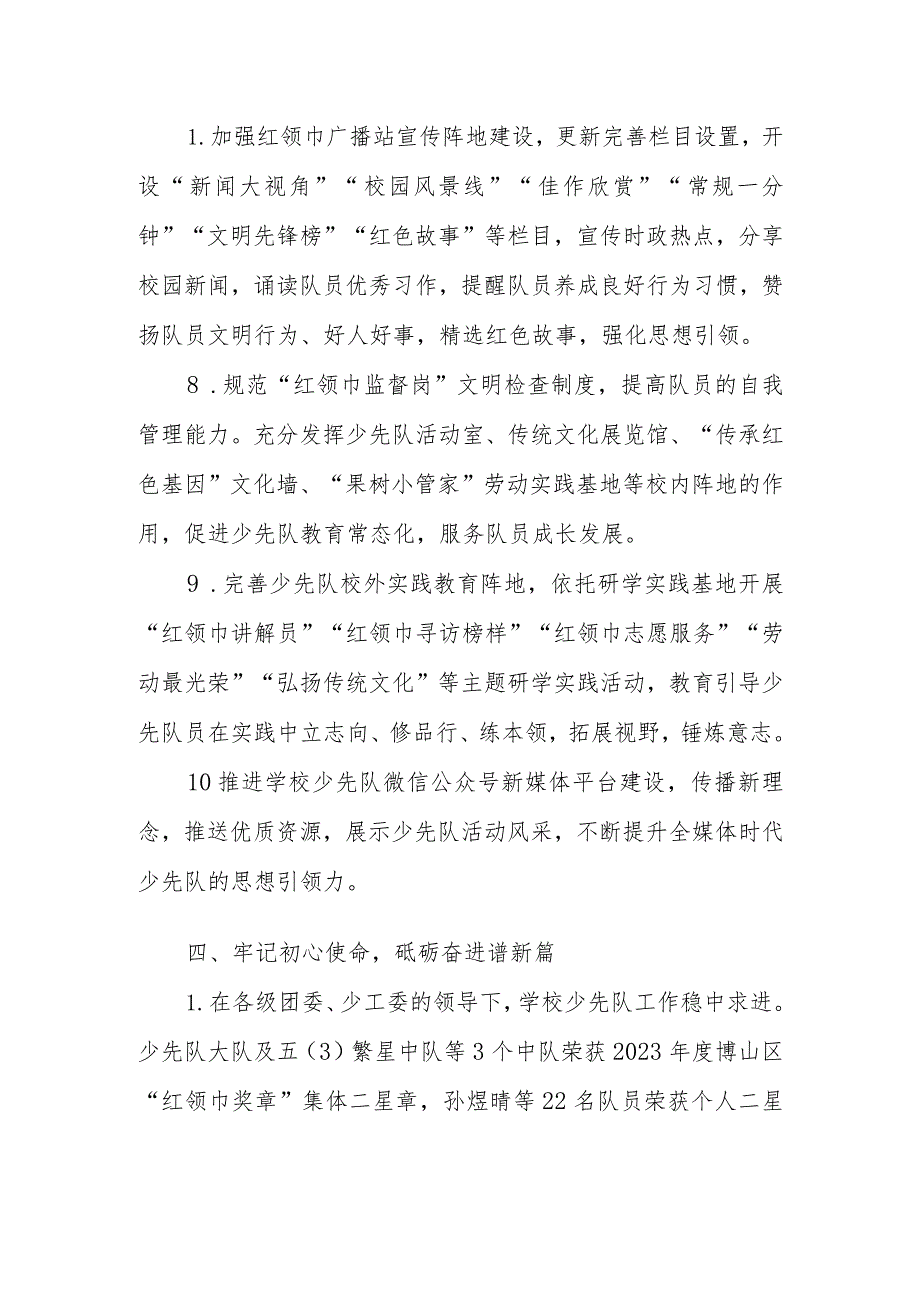 1.加强红领巾广播站宣传阵地建设，更新完善栏目设置，开
设“新闻大视角”“校园风景线”“佳作欣赏”“常规一分
钟”“文明先锋榜”“红色故事”等栏目，宣传时政热点，分享
校园新闻，诵读队员优秀习作，提醒队员养成良好行为习惯，赞
扬队员文明行为、好人好事，精选红色故事，强化思想引领。
8.规范“红领巾监督岗”文明检查制度，提高队员的自我
管理能力。充分发挥少先队活动室、传统文化展览馆、“传承红
色基因”文化墙、“果树小管家”劳动实践基地等校内阵地的作
用，促进少先队教育常态化，服务队员成长发展。
9.完善少先队校外实践教育阵地，依托研学实践基地开展
“红领巾讲解员”“红领巾寻访榜样”“红领巾志愿服务”“劳
动最光荣”“弘扬传统文化”等主题研学实践活动，教育引导少
先队员在实践中立志向、修品行、练本领，拓展视野，锤炼意志。
10推进学校少先队微信公众号新媒体平台建设，传播新理
念，推送优质资源，展示少先队活动风采，不断提升全媒体时代
少先队的思想引领力。
四、牢记初心使命，砥砺奋进谱新篇
1.在各级团委、少工委的领导下，学校少先队工作稳中求进。
少先队大队及五（3）繁星中队等3个中队荣获2023年度博山区
“红领巾奖章”集体二星章，孙煜晴等22名队员荣获个人二星